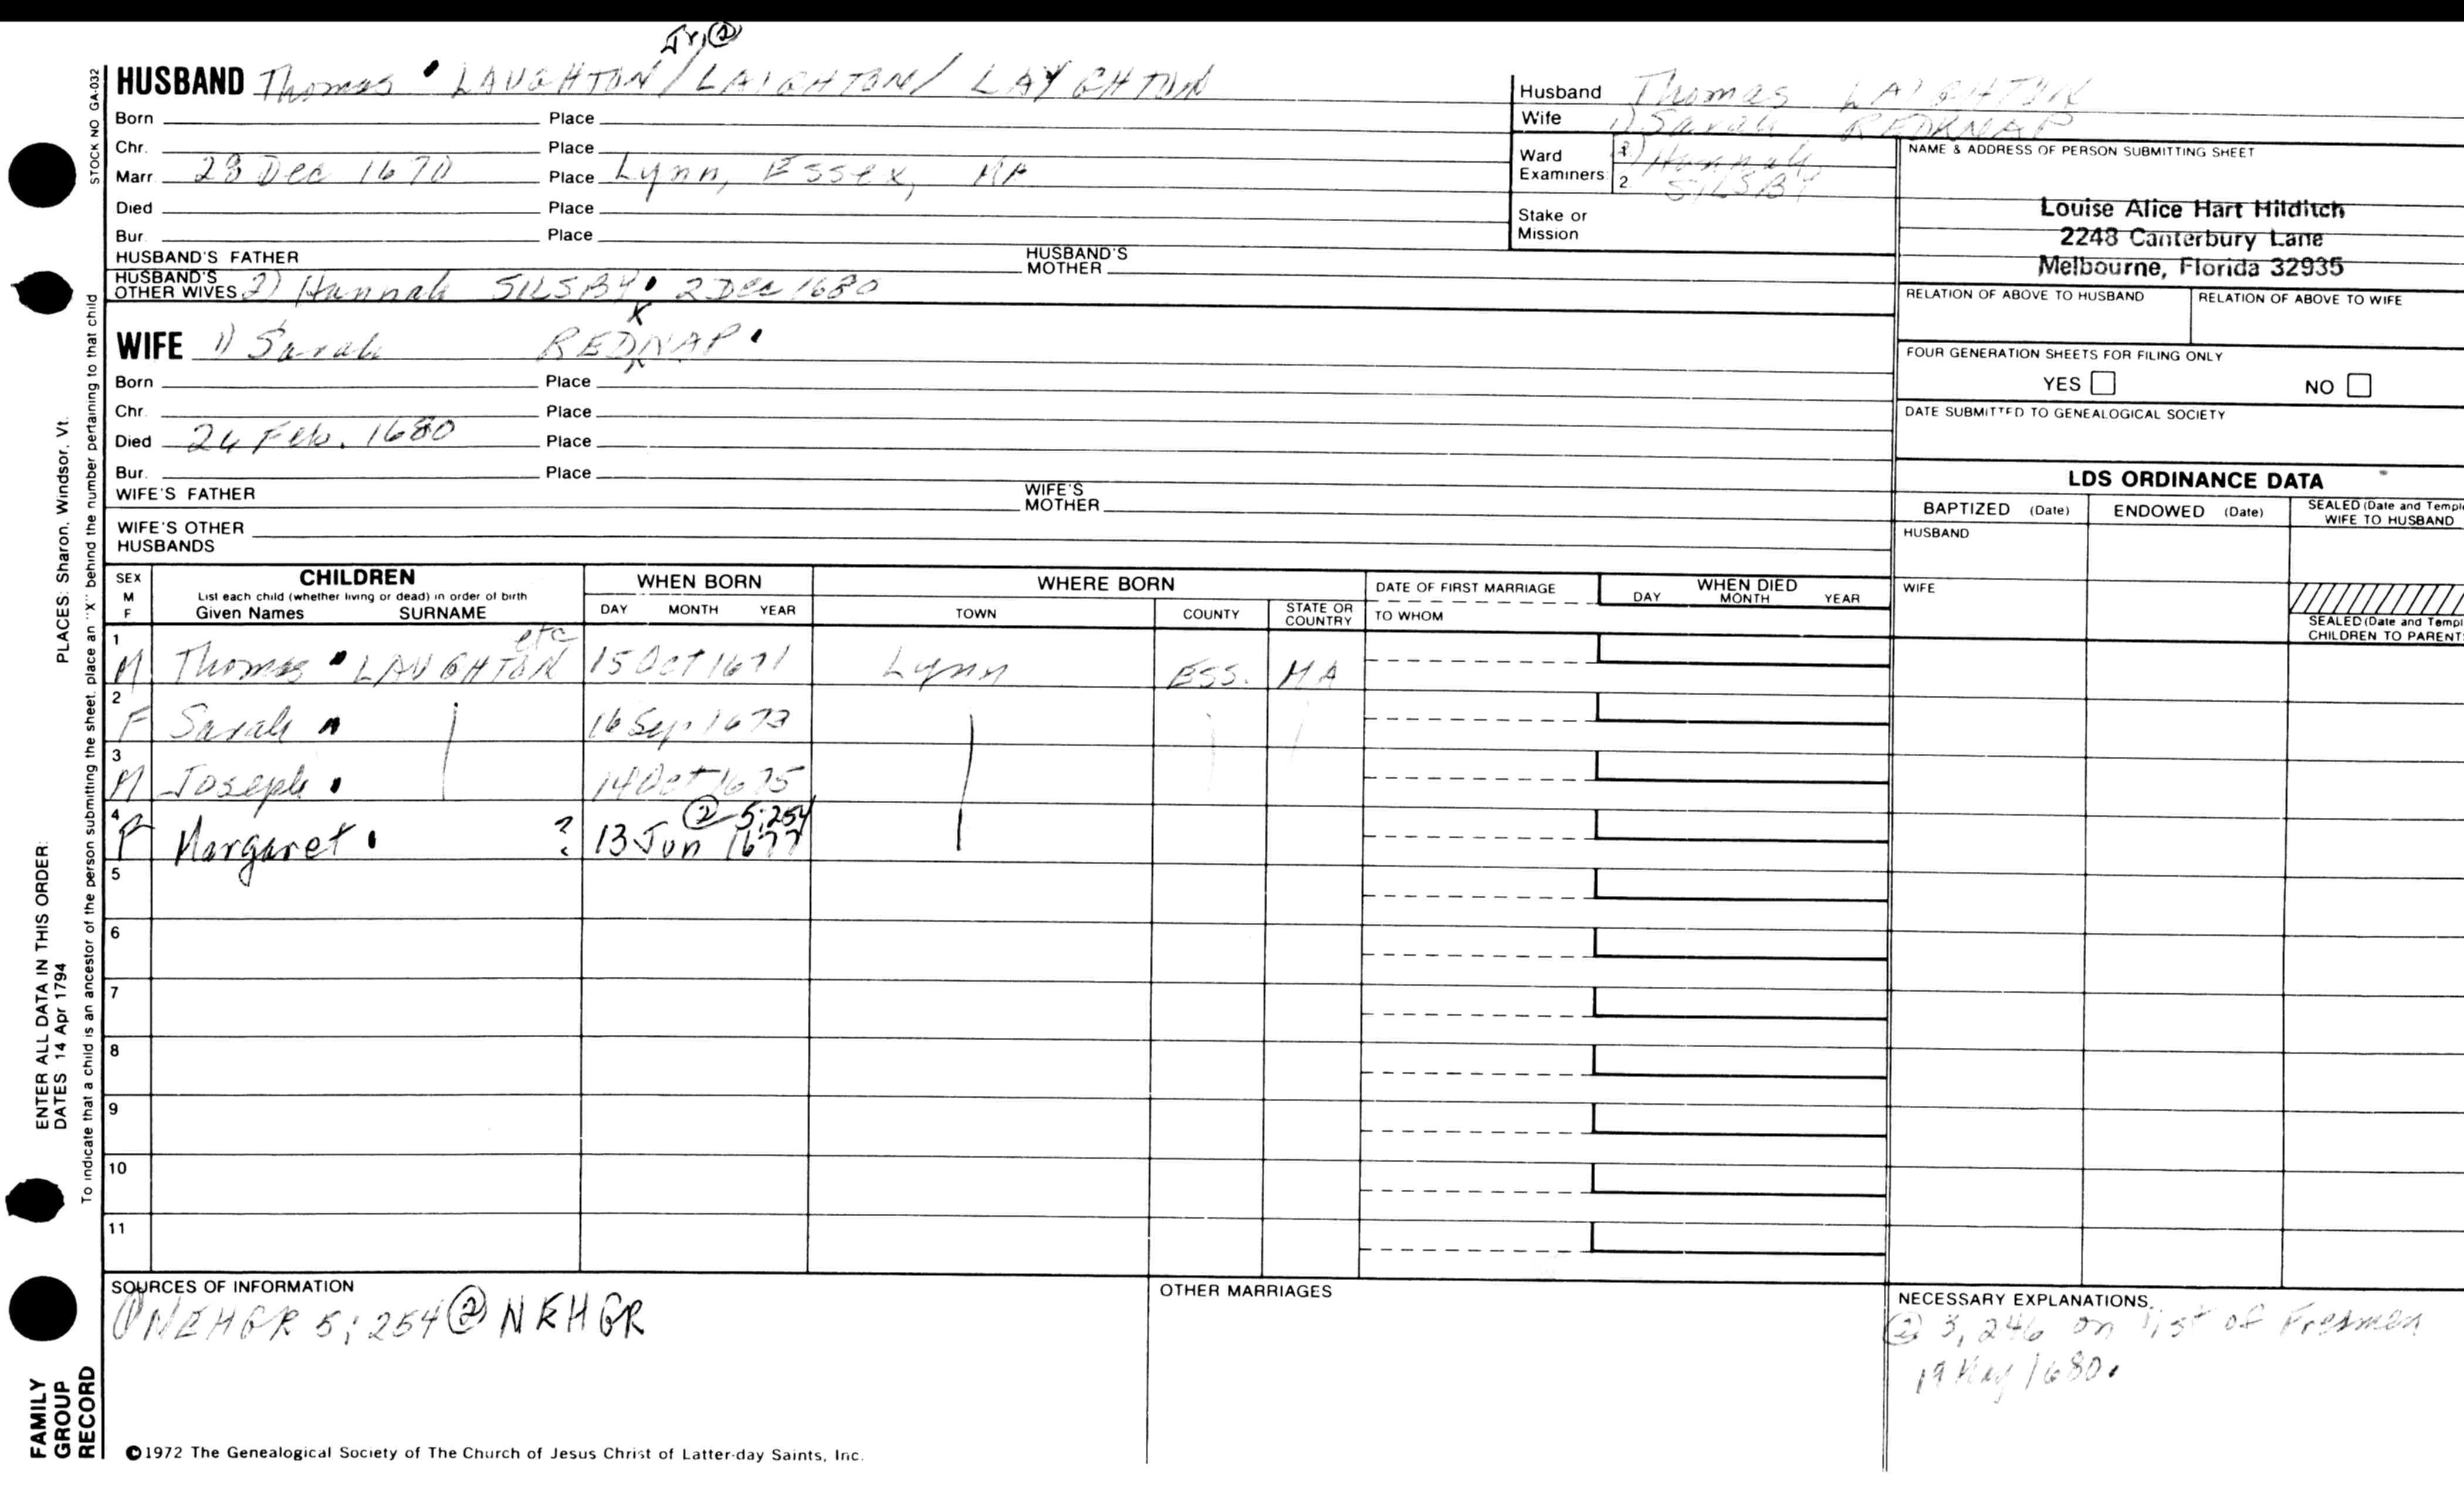 Jr, ②
HUSBAND Thomas LAUGHTON / LAIGHTON / LAYGHTON
Born Place
Chr. Place
Marr. 28 Dec 1670 Place Lynn, Essex, MA
Died Place
Bur. Place
HUSBAND'S FATHER HUSBAND'S MOTHER
HUSBAND'S OTHER WIVES 2) Hannah SILSBY 2 Dec 1680
K
WIFE 1) Sarah REDNAP
Born Place
Chr. Place
Died 26 Feb. 1680 Place
Bur. Place
WIFE'S FATHER WIFE'S MOTHER
WIFE'S OTHER HUSBANDS
Husband Thomas LAIGHTON
Wife 1) Sarah REDKNAP
Ward Examiners 1 2) Hannah
2. SILSBY
Stake or Mission
NAME & ADDRESS OF PERSON SUBMITTING SHEET
Louise Alice Hart Hilditch
2248 Canterbury Lane
Melbourne, Florida 32935
RELATION OF ABOVE TO HUSBAND RELATION OF ABOVE TO WIFE
FOUR GENERATION SHEETS FOR FILING ONLY
YES NO
DATE SUBMITTED TO GENEALOGICAL SOCIETY
LDS ORDINANCE DATA
BAPTIZED (Date) ENDOWED (Date) SEALED (Date and Temple) WIFE TO HUSBAND
HUSBAND
WIFE
SEALED (Date and Temple) CHILDREN TO PARENTS
SEX M F CHILDREN WHEN BORN WHERE BORN DATE OF FIRST MARRIAGE WHEN DIED
List each child (whether living or dead) in order of birth
Given Names SURNAME DAY MONTH YEAR TOWN COUNTY STATE OR COUNTRY TO WHOM DAY MONTH YEAR
etc
1 M Thomas LAUGHTON 15 Oct 1671 Lynn ESS. MA
2 F Sarah 16 Sep 1673
3 M Joseph 14 Oct 1675
② 5:254
4 F Margaret ? 13 Jun 1677
5
6
7
8
9
10
11
SOURCES OF INFORMATION
① NEHGR 5:254 ② NEHGR
OTHER MARRIAGES
NECESSARY EXPLANATIONS
② 3,246 on list of Freemen
19 May 1680.
©1972 The Genealogical Society of The Church of Jesus Christ of Latter-day Saints, Inc.
STOCK NO GA-032
PLACES: Sharon, Windsor, Vt.
ENTER ALL DATA IN THIS ORDER:
DATES 14 Apr 1794
To indicate that a child is an ancestor of the person submitting the sheet, place an "X" behind the number pertaining to that child
FAMILY
GROUP
RECORD